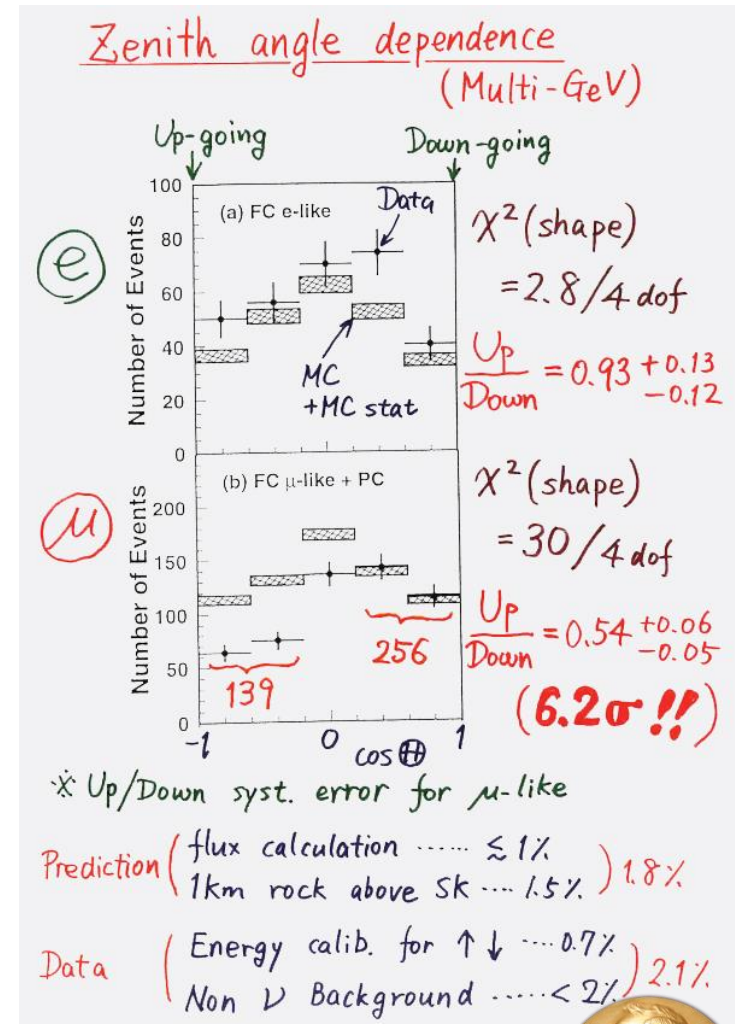 Zenith angle dependence
(Multi-GeV)
Up-going
Down-going
100
(a) FC e-like
Data
80
60
40
20
0
Number of Events
e
MC
+MC stat
χ²(shape)
=2.8/4 dof
Up/Down = 0.93 +0.13 -0.12
(b) FC μ-like + PC
200
150
100
50
0
Number of Events
μ
139
256
-1
0
1
cos Θ
χ²(shape)
= 30/4 dof
Up/Down = 0.54 +0.06 -0.05
(6.2σ!!)
※ Up/Down syst. error for μ-like
Prediction ( flux calculation ...... ≲ 1%
1km rock above SK .... 1.5% ) 1.8%
Data ( Energy calib. for ↑↓ .... 0.7%
Non ν Background ..... < 2% ) 2.1%